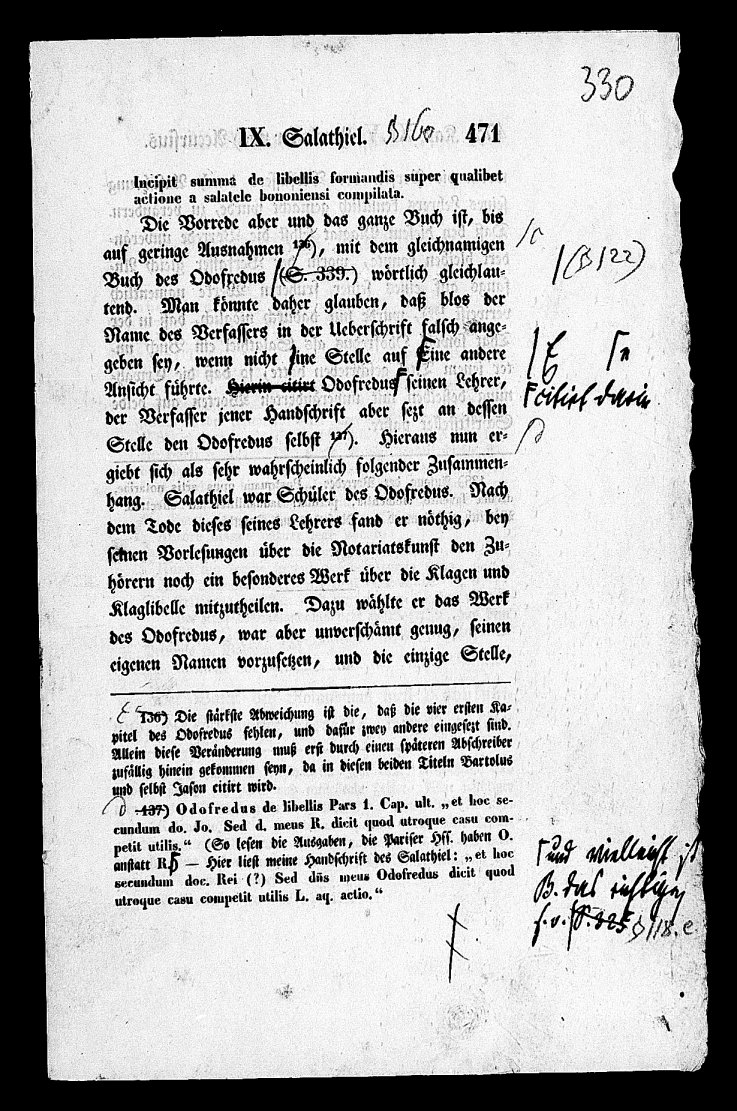 330
IX. Salathiel. 471
Incipit summa de libellis formandis super qualibet
actione a salatele bononiensi compilata.
Die Vorrede aber und das ganze Buch ist, bis
auf geringe Ausnahmen 136), mit dem gleichnamigen /c
Buch des Odofredus (S. 339.) wörtlich gleichlau- (B 122)
tend. Man könnte daher glauben, daß blos der
Name des Verfassers in der Ueberschrift falsch ange-
geben sey, wenn nicht eine Stelle auf Eine andere E
Ansicht führte. Hierin citirt Odofredus seinen Lehrer, citirt darin
der Verfasser jener Handschrift aber sezt an dessen
Stelle den Odofredus selbst 137). Hieraus nun er- /d
giebt sich als sehr wahrscheinlich folgender Zusammen-
hang. Salathiel war Schüler des Odofredus. Nach
dem Tode dieses seines Lehrers fand er nöthig, bey
seinen Vorlesungen über die Notariatskunst den Zu-
hörern noch ein besonderes Werk über die Klagen und
Klaglibelle mitzutheilen. Dazu wählte er das Werk
des Odofredus, war aber unverschämt genug, seinen
eigenen Namen vorzusetzen, und die einzige Stelle,
c 136) Die stärkste Abweichung ist die, daß die vier ersten Ka-
pitel des Odofredus fehlen, und dafür zwey andere eingesezt sind.
Allein diese Veränderung muß erst durch einen späteren Abschreiber
zufällig hinein gekommen seyn, da in diesen beiden Titeln Bartolus
und selbst Jason citirt wird.
d 137) Odofredus de libellis Pars 1. Cap. ult. „et hoc se-
cundum do. Jo. Sed d. meus R. dicit quod utroque casu com-
petit utilis.“ (So lesen die Ausgaben, die Pariser Hss. haben O.
anstatt R. — Hier liest meine Handschrift des Salathiel: „et hoc
secundum doc. Rei (?) Sed dns meus Odofredus dicit quod
utroque casu competit utilis L. aq. actio.“
und vielleicht ist
B. das richtige
s. o. S. 325 118. e